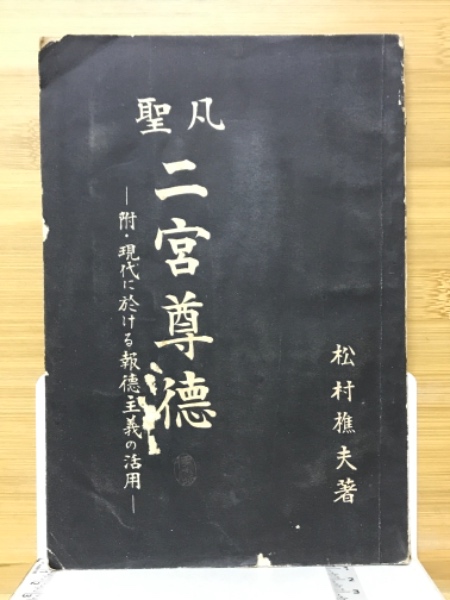 凡聖
二宮尊徳
―附・現代に於ける報徳主義の活用―
松村樵夫著